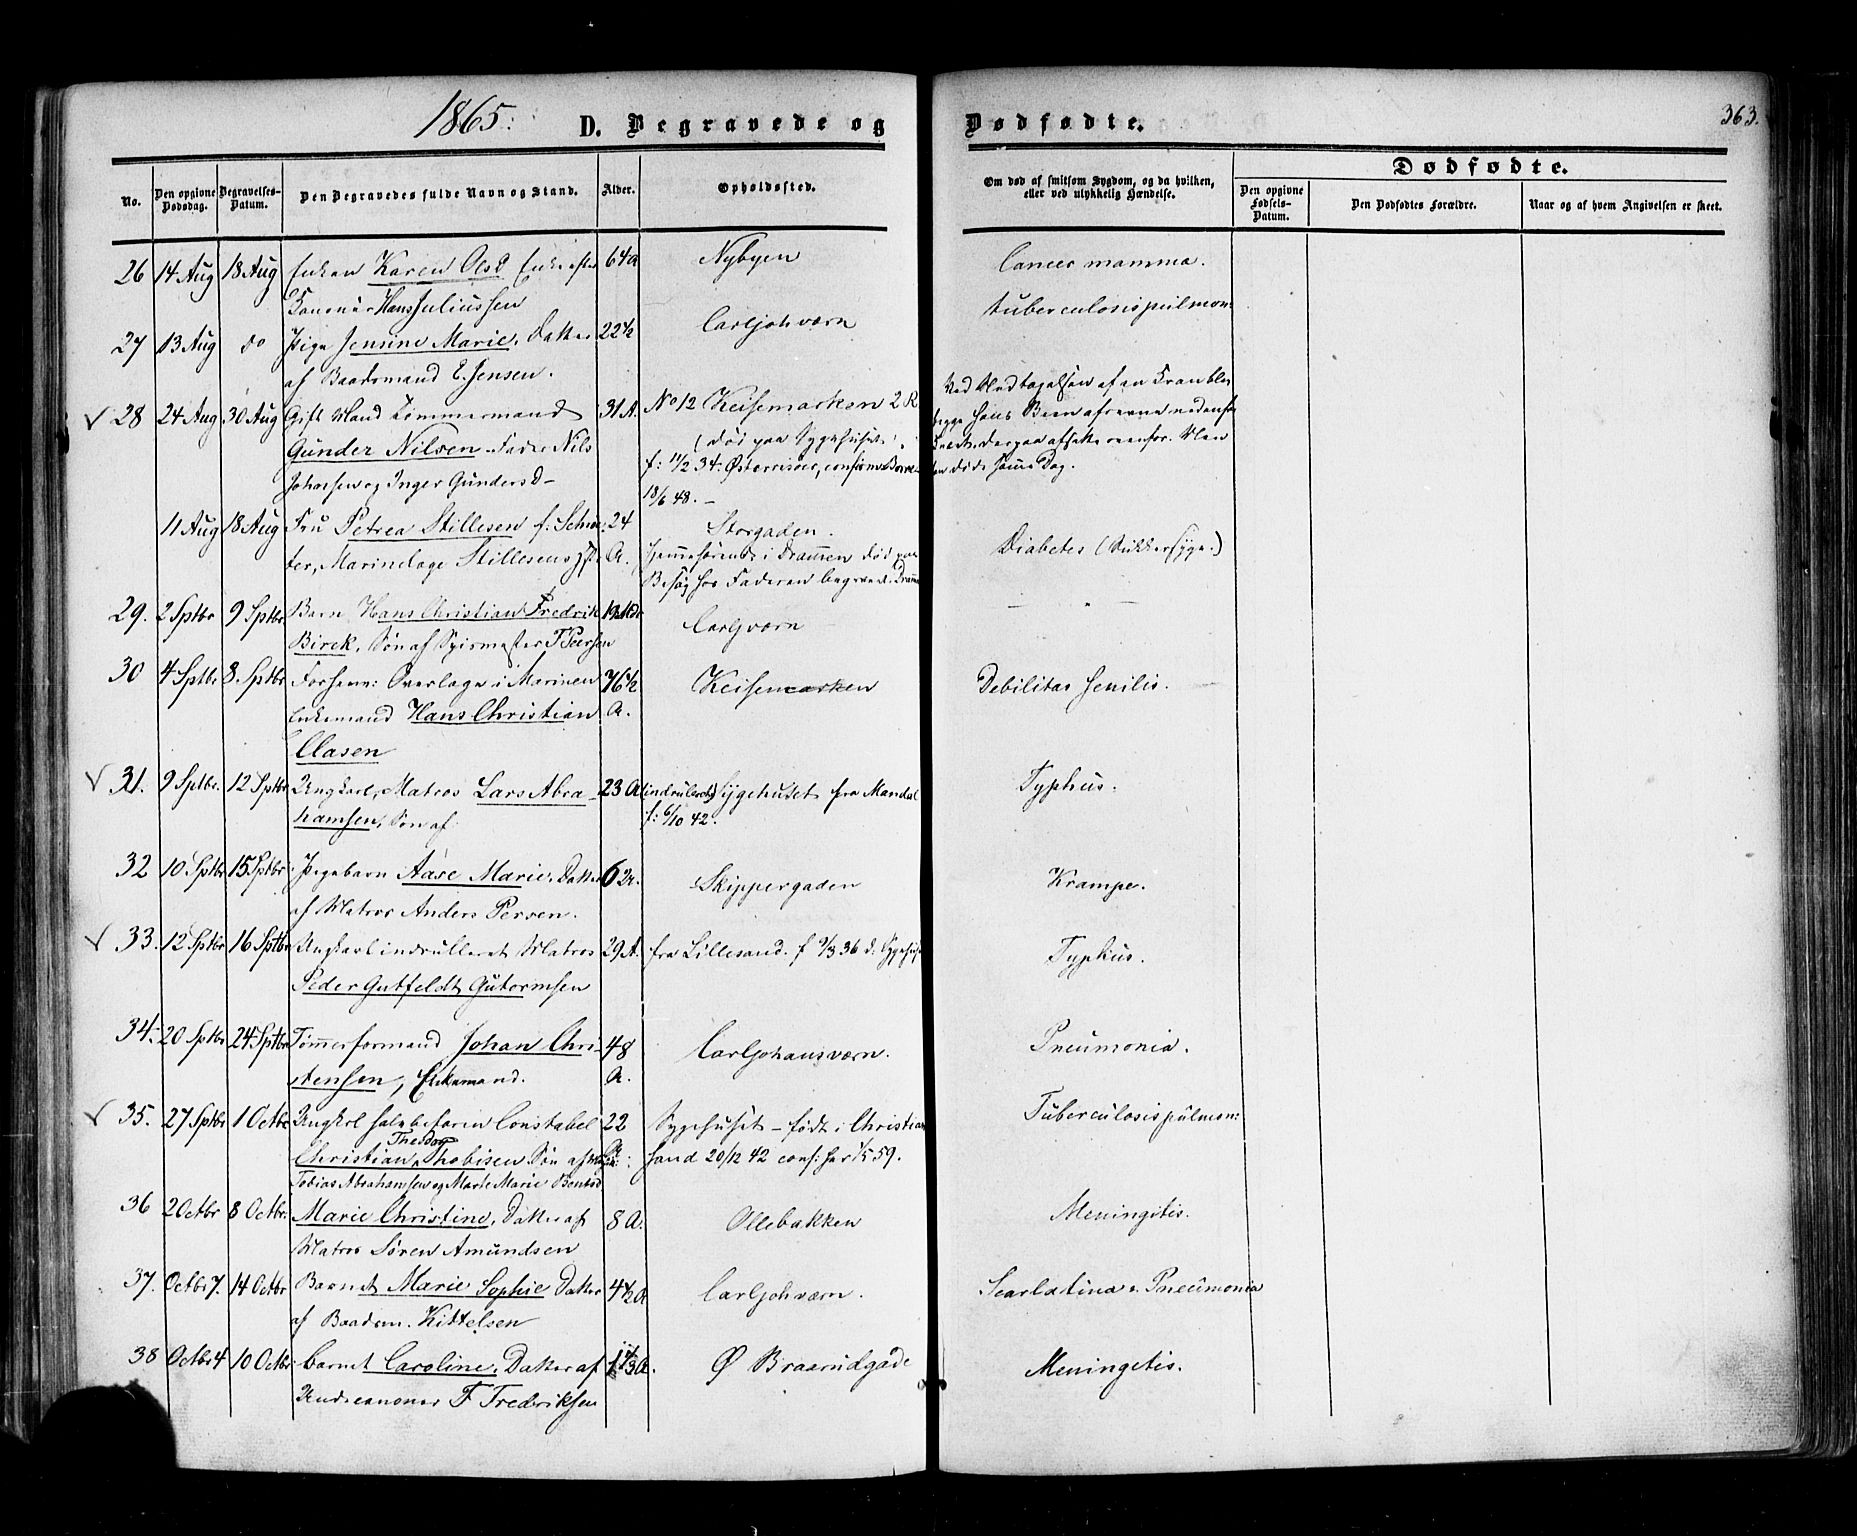 1865.
D. Begravede og Dødfødte.
363.
No.
Den opgivne Dødsdag.
Begravelses-Datum.
Den Begravedes fulde Navn og Stand.
Alder.
Opholdssted.
Om død af smitsom Sygdom, og da hvilken,
eller ved ulykkelig Hændelse.
Dødfødte.
Den opgivne Fødsels-Datum.
Den Dødfødtes Forældre.
Naar og af hvem Angivelsen er skeet.
26 14 Aug 18 Aug Enken Karen Olsd Enke efter 64 A Nybyen Cancer mamma.
Hans Juliussen
27 13 Aug do Pige Jensine Marie, Datter 22½ Carljohværn tuberculosis pulmon:
af Baadsmand E. Jensen.
28 24 Aug 30 Aug Gift Mand Tømmermand 31 A. No 12 Keisemarken 2 R Ved Nedtagelsen af en Kran blev
Gunder Nilsen. Fader Nils (død paa Sygehuset) begge hans Been afrevne nedenfor
Johnsen og Inger Gundersd- f: 11/2 34: Østerrisøer, confirm Knæet, derpaa afsatte ovenfor. Man-
18/6 48. - en døde samme Dag.
11 Aug 18 Aug Fru Petrea Stillesen f. Schrø- 24 Storgaden. Diabetes (Sukkersyge.)
ter, Marinelæge Stillesens A. hjemmehørende i Drammen død paa
Besøg hos Faderen begravet i Dramm
29. 2 Sptbr 9 Sptbr Barn Hans Christian Fredrik Carljværn - " -
Birck, Søn af T Peersen
30 4 Sptbr. 8. Sptbr Forhenv: Overlæge i Marinen 76½ Keisemarken Debilitas senilis.
Enkemand Hans Christian A.
Clasen
31. 9 Sptbr. 12 Sptbr Ungkarl, Matros Lars Abra- 23 A (indrulleret) Sygehuset fra Mandal Typhus.
hamsen, Søn af f: 6/10 42.
32 10 Sptbr 15 Sptbr Pigebarn Aase Marie, Datter 6 Skippergaden Krampe.
af Matros Anders Persen.
33. 12 Sptbr 16 Sptbr Ungkarl indrulleret Matros 29 A. fra Lillesand. f 9/3 36 d. Sygehuset Typhus.
Peder Gutfeldt Gutormsen
34. 20 Sptbr 24 Sptbr Tømmerformand Johan Chri- 48 Carljohansværn. Pneumonia.
stensen, Enkemand. A.
35. 27 Sptbr 1 Octbr Ungkrl halvbefaren Constabel 22 Sygehuset - født i Christian Tuberculosis pulmon:
Theodor
Christian Thobisen Søn af sand 20/12 42 conf: her 59.
Tobias Abrahamsen og Marte Marie
36 2 Octbr 8 Octbr. Marie Christine, Datter af 8 A. Ollebakken Meningitis.
Matros Søren Amundsen
37. Octbr 7. 14 Octbr Barnet Marie Sophie Datter 4½ A Carljohværn. Scarlatina & Pneumonia
af Baadsm. Kittelsen
38 Octbr 4 10 Octbr Barnet Caroline, Datter af 1 1/3 A. Ø Braarudgade Meningitis.
Undercanoner F Frederiksen